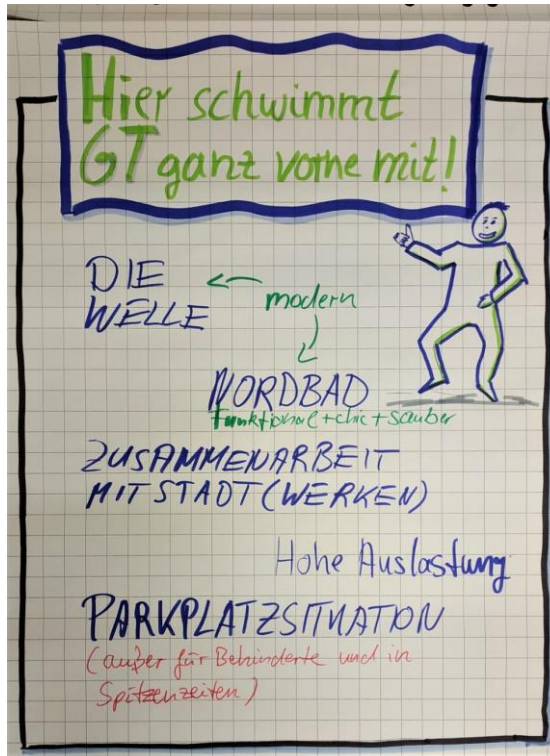 Hier schwimmt
GT ganz vorne mit!
DIE
WELLE
modern
NORDBAD
Funktional + chic + sauber
ZUSAMMENARBEIT
MIT STADT (WERKEN)
Hohe Auslastung
PARKPLATZSITUATION
(außer für Behinderte und in
Spitzenzeiten)